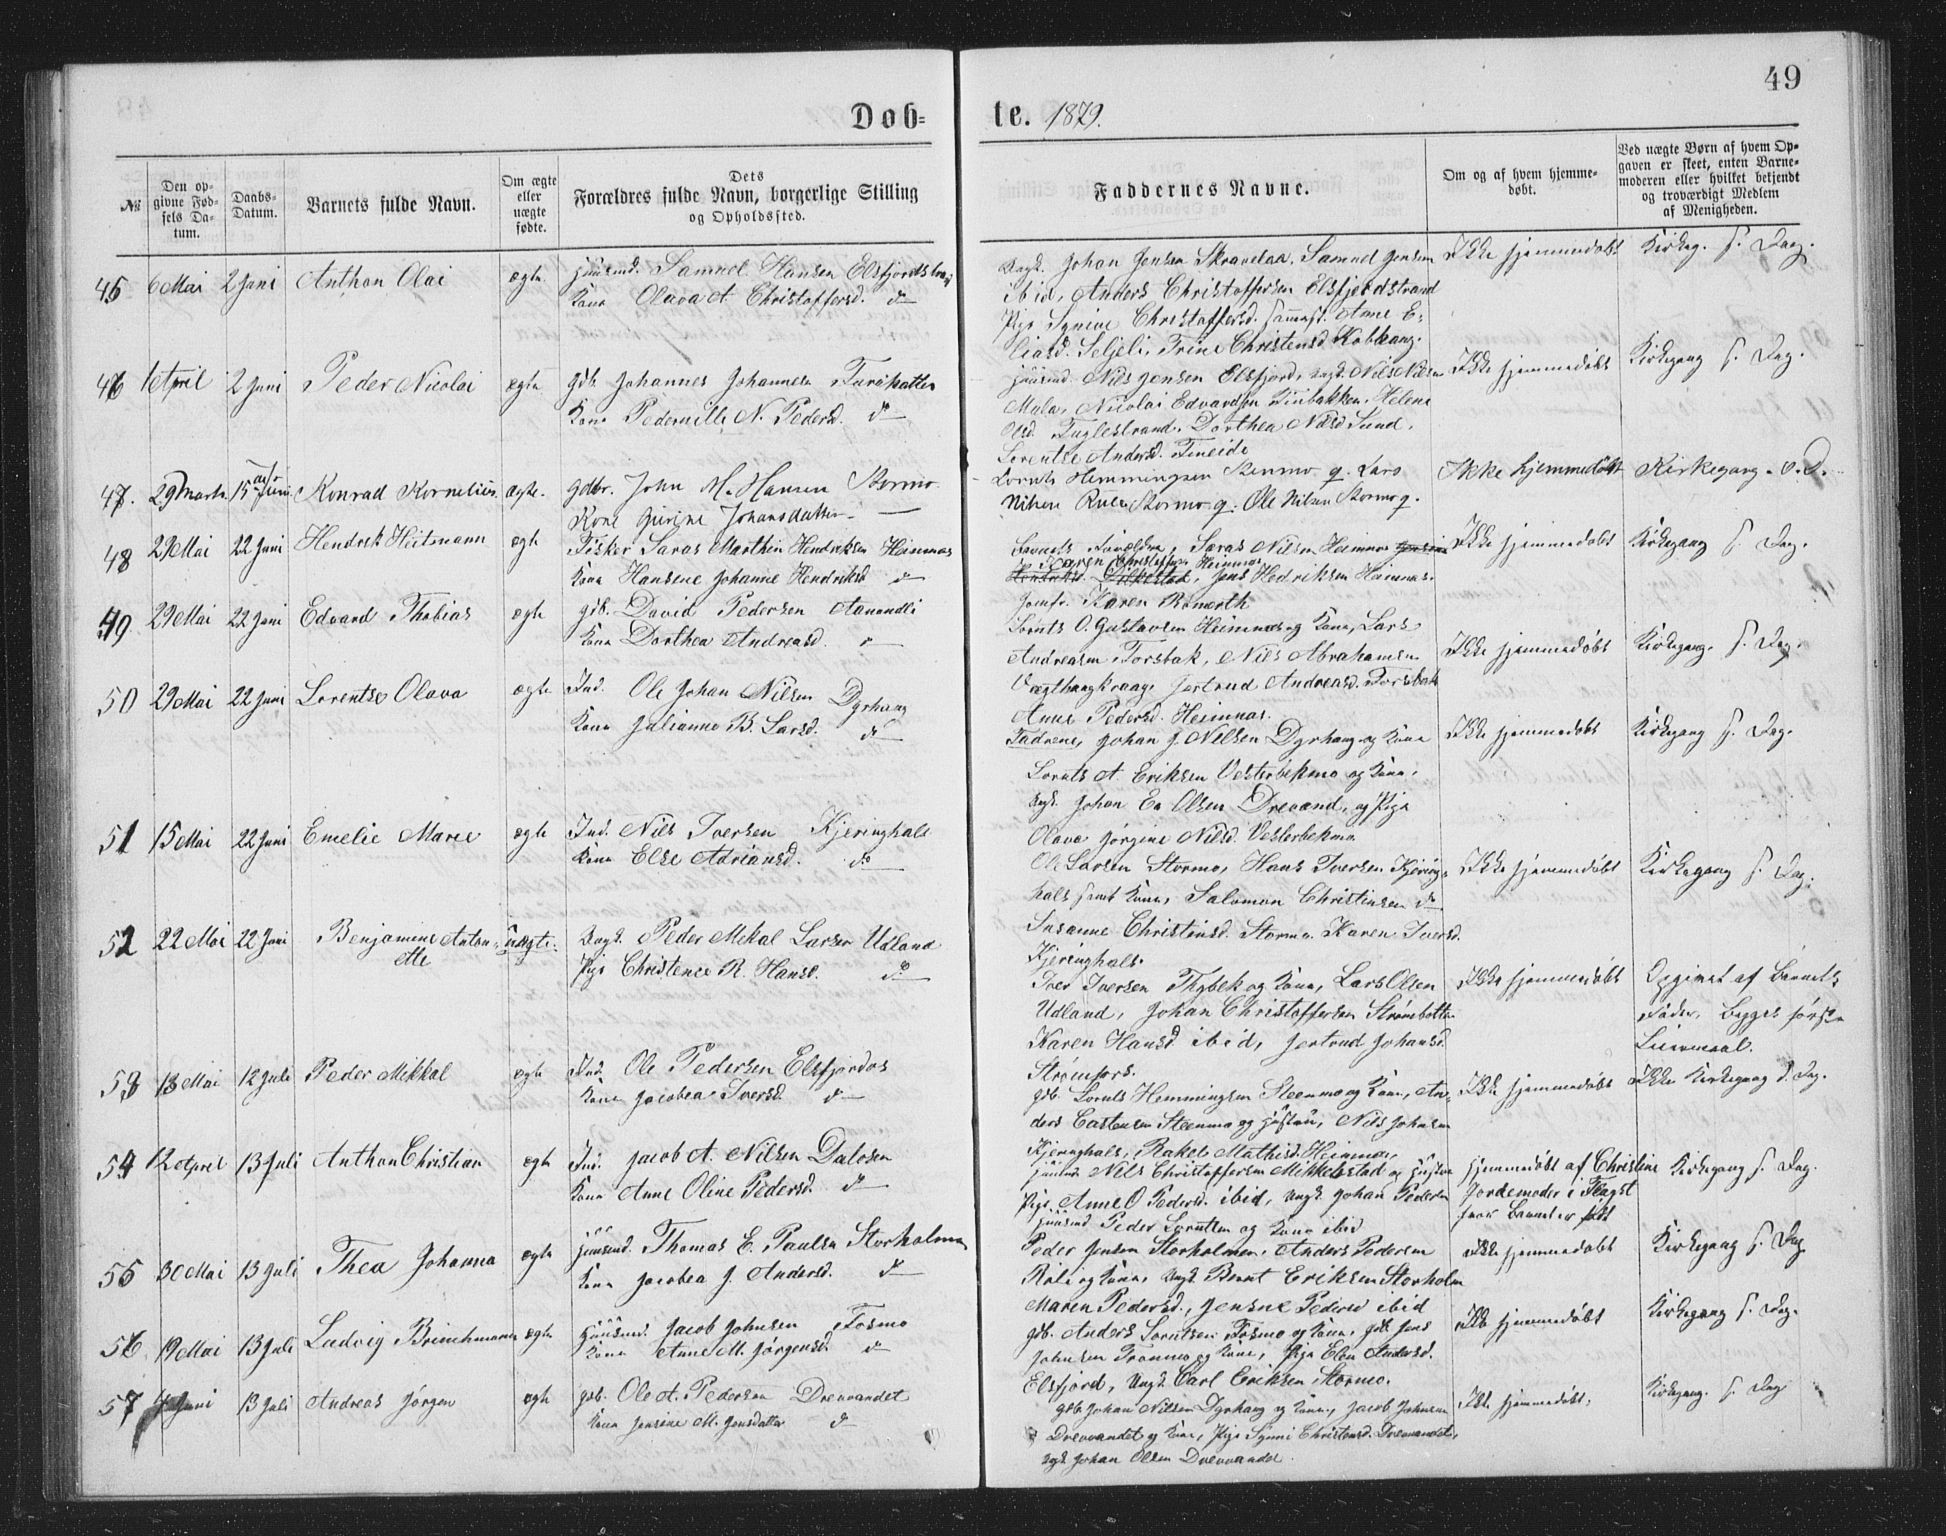 49
Døb- te. 1879.
№
Den opgivne Fødsels Datum.
Daabs-Datum.
Barnets fulde Navn.
Om ægte eller uægte fødte.
Dets Forældres fulde Navn, borgerlige Stilling og Opholdssted.
Faddernes Navne.
Om og af hvem hjemmedøbt.
Ved uægte Børn af hvem Opgaven er skeet, enten Barnemoderen eller hvilket bekjendt og troværdigt Medlem af Menigheden.
45 6 Mai 2 Juni Anthon Olai ægte Huusmd. Samuel Hansen Elsfjordstrand
Kone Olava A. Christoffersd. do
Ungk. Johan Jensen Skravelaa, Samuel Jensen
ibid, Anders Christoffersen Elsfjordstrand
Pige Synine Christoffersd. sammest. Anne E-
liasd. Seljeli, Trine Christensd. Kobhaug.
Ikke hjemmedøbt Kirkeg. s. Dag.
46 1 April 2 Juni Peder Nicolai ægte gdb. Johannes Johannesen
Kone Pedernille N. Pedersd. do
Huusmd. Nils Jensen Elsfjord, ungk. Nils Nilsen
Mula, Nicolai Edvardsen Helene
Olsd. Fuglestrand, Dorthea Nilsd Sund,
Lorentse Andersd. Fineide
Ikke hjemmedøbt Kirkegang s. Dag.
47. 29 Marts. 15 Juni. Konrad Kornelius. ægte. Gdbr. John M. Hansen Stormo
Kone Gurine Johansdatter —
Lornts Hemmingsen Stenmo g. Lars
Nilsen Stormo g. Ole Nilsen Stormo g.
Ikke hjemmedøbt Kirkegang. s. D.
48 29 Mai 22 Juni Hendrik Heitmann ægte Fisker Saras Marthin Hendriksen Heimnes
Kone Hansine Johanne Hendriksd do
Barnets Forældre, Saras Nilsen Heimnes
Karen Christoffers. Heimnes
Jens Hedriksen Heimnes.
Jomfr. Karen
Ikke hjemmedøbt Kirkegang s. Dag.
49 29 Mai 22 Juni Edvard Thobias ægte gdb. David Pedersen Aanondli
Kone Dorthea Andreasd. do
Lornts O. Gustavsen Heimnes og Kone, Lars
Andreasen Forsbak, Nils Abrahamsen
Jertrud Andreasd. Forsbak
Anne Pedersd. Heimnes.
Ikke hjemmedøbt Kirkegang. s. Dag.
50 29 Mai 22 Juni Lorentse Olava ægte Ind. Ole Johan Nilsen Dyrhaug
Kone Julianna B. Larsd. do
Johan J. Nilsen Dyrhaug og Kone
Lornts A. Eriksen Vesterbekmo og Kone,
Ungk. Johan Ea Olsen Drevand, og Pige
Olava Jørgine Nilsd. Vesterbekmo.
Ikke hjemmedøbt Kirkegang s. Dag.
51 15 Mai 22 Juni Emelie Marie ægte Ind. Nils Iversen Kjeringhals
Kone Else Adriansd. do
Ole Larsen Stormo, Hans Iversen Kjering-
hals samt Kone, Salomon Christensen do
Susanne Christensd. Stormo. Karen Iversd.
Kjeringhals.
Ikke hjemmedøbt Kirkegang s. Dag.
52 22 Mai 22 Juni Benjamine Anton-
ette uægte. Ungk. Peder Mikal Larsen Udland
Pige Christence R. Hansd. do
Iver Iversen Thybek og Kone, Lars Olsen
Udland, Johan Christoffersen Strømbotten
Karen Hansd. ibid, Jertrud Johansd.
Strømfors.
Ikke hjemmedøbt Opgivet af Barnets
Fader, Begges første
Leiermaal.
53 13 Mai 12 Juli Peder Mikkal ægte Ind. Ole Pedersen Elsfjordos
Kone Jacobea Iversd. do
gdb. Lornts Hemmingsen Steenmo og Kone, An-
ders Castensen Steenmo og Hustru, Nils Johnsen
Kjeringhals, Rakel Mathisd. Heimnes,
Ikke hjemmedøbt Ikke Kirkegang s. Dag.
54 12 April 13 Juli Anthon Christian ægte Ind. Jacob A. Nilsen Dalosen
Kone Anne Oline Pedersd. do
Huusmd. Nils Christoffersen Mikkelstad og Hustru
Pige Anne O Pedersd. ibid, ungk Johan Pedersen
Huusmd Peder Lorntsen og Kone ibid
hjemmedøbt af Christine
Jordemoder i
hvor Barnet er født Kirkegang s. Dag.
55 30 Mai 13 Juli Thea Johanna ægte Huusmd. Thomas E. Paulsen Storholmen
Kone Jacobea J. Andersd. do
Peder Jensen Storholmen, Anders Pedersen
Røli og Kone, Ungk. Bernt Eriksen Storholm
Maren Pedersd., Jensine Pedersd ibid
Ikke hjemmedøbt Kirkegang s. Dag
56 19 Mai 13 Juli Ludvig Brinchmann ægte Huusmd. Jacob Johnsen Fosmo
Kone Anne M. Jørgensd. do
gdb. Anders Lorntsen Fosmo og Kone, gdb Jens
Johnsen Tranmo og Kone, Pige Elen Andersd.
Elsfjord, Ungk Carl Eriksen Stormo.
Ikke hjemmedøbt Kirkegang s. Dag.
57 4 Juni 13 Juli Andreas Jørgen ægte gdb. Ole A. Pedersen Drevvandet
Kone Jensine M. Jensdatter do
gdb Johan Nilsen Dyrhaug og Kone, Jacob Johnsen
Drevvandet og Kone, Pige Synni Christensd. Drevvandet,
Ungk Johan Olsen Drevvandet.
Ikke hjemmedøbt, Kirkegang. s. Dag